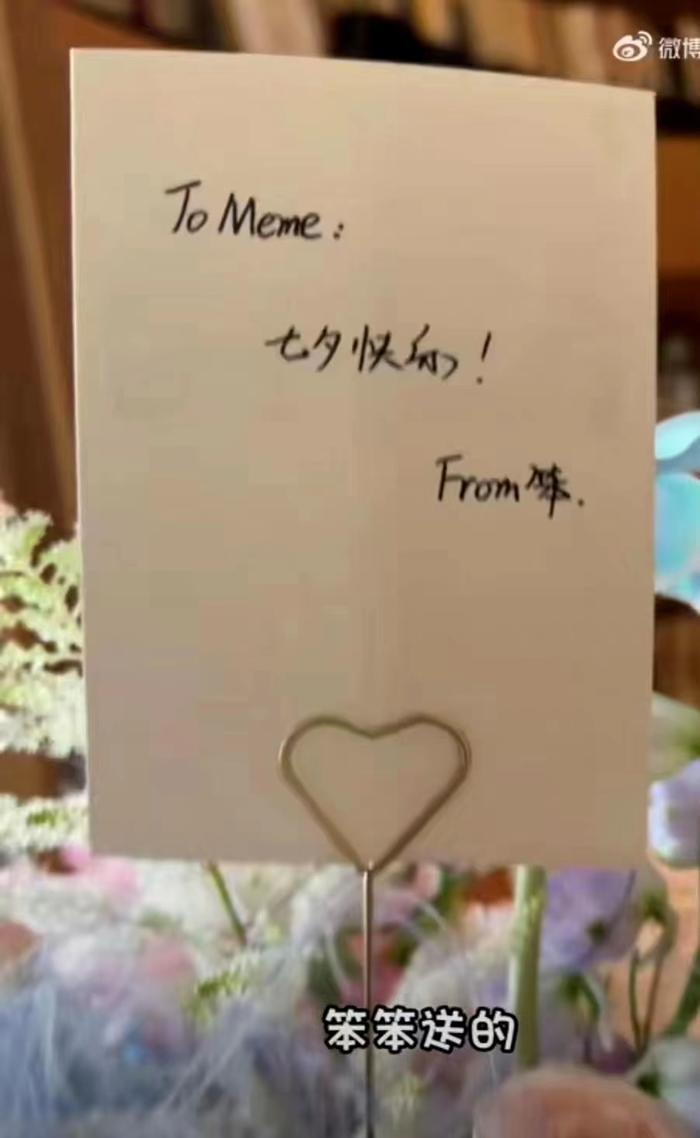 微博
To Meme:
七夕快乐!
From 笨.
笨笨送的